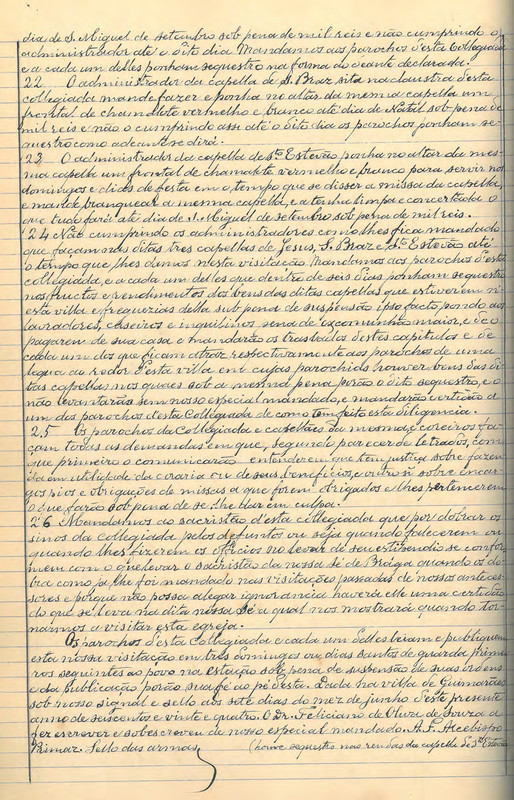 dia de S. Miguel de setembro sob pena de mil reis e não cumprindo o
administrador até o dito dia Mandamos aos parochos d'esta Collegiada
e a cada um delles ponham sequestro na forma ao deante declarada.
22 O administrador da capella de S. Braz sita na claustra d'esta
collegiada mande fazer e ponha no altar da mesma capella um
frontal de chamalote vermelho e branco até dia de Natal sob pena de
mil reis e não o cumprindo assi até o dito dia os parochos ponham se-
questro como adeante se dirá.
23 O administrador da capella de Sto Estevão ponha no altar da mes-
ma capella um frontal de chamalote vermelho e branco para servir nos
domingos e dias de festa em o tempo que se disser a missa da capella,
e mande branquear a mesma capella, e a tenha limpa e concertada o
que tudo fará até dia de S. Miguel de setembro sob pena de mil reis.
24 Não cumprindo os administradores como lhes fica mandado
que façam nas ditas tres capellas de Jesus, S. Braz e Sto Estevão até
o tempo que lhes damos n'esta visitação Mandamos aos parochos d'esta
collegiada, e a cada um delles que dentro de seis dias ponham sequestro
nos fructos e rendimentos dos bens das ditas capellas que estiverem n'-
esta villa e freguezias della sub pena de suspensão ipso facto, pondo aos
lavradores, caseiros e inquilinos pena de excommunhão maior, e de o
pagarem de sua casa e mandarão os traslados destes capitulos e de
cada um dos que ficam atraz respectivamente aos parochos de uma
legua ao redor d'esta villa em cujas parochias houver bens das di-
tas capellas nos quaes sob a mesma pena porão o dito sequestro, e o
não levantarão sem nosso especial mandado, e mandarão certidão a
um dos parochos d'esta Collegiada de como tem feito esta diligencia.
25 Os parochos da Collegiada e capellães da mesma, e coreiros fa-
çam todas as demandas em que, segundo parecer de letrados, com
que primeiro o communicarão entenderem que tem justiça sobre fazen-
da em utilidade da coraria ou de seus beneficios, e outro si sobre encar-
gos pios e obrigações de missas a que forem obrigados e lhes pertencerem
O que farão sob pena de se lhe dar em culpa.
26 Mandamos ao sacristão d'esta collegiada que por dobrar os
sinos da collegiada pelos defuntos ou seja quando falecerem ou
quando lhes fizerem os officios no levar de seu estipendio se confor-
mem com o que levar o sacristão da nossa sé de Braga quando os do-
bra como já lhe foi mandado nas visitações passadas de nossos anteces-
sores e porque não possa alegar ignorancia haverá elle uma certidão
do que se leva na dita nossa Sé a qual nos mostrará quando tor-
narmos a visitar esta egreja.
Os parochos d'esta Collegiada e cada um delles leiam e publiquem
esta nossa visitação em tres Domingos ou dias santos de guarda primei-
ros seguintes ao povo na estação sob pena de suspensão de suas ordens
e da Publicação porão sua fé ao pé d'esta. Dada na villa de Guimarães
sob nosso signal e sello aos sete dias do mez de junho d'este presente
anno de seiscentos e vinte e quatro. O Dr. Feliciano de Olivra de Souza a
fez escrever e sobescreveu de nosso especial mandado. A. F. Arcebispo
Primaz. Sello das armas
(houve sequestro nas rendas da capella de Sto Estevão